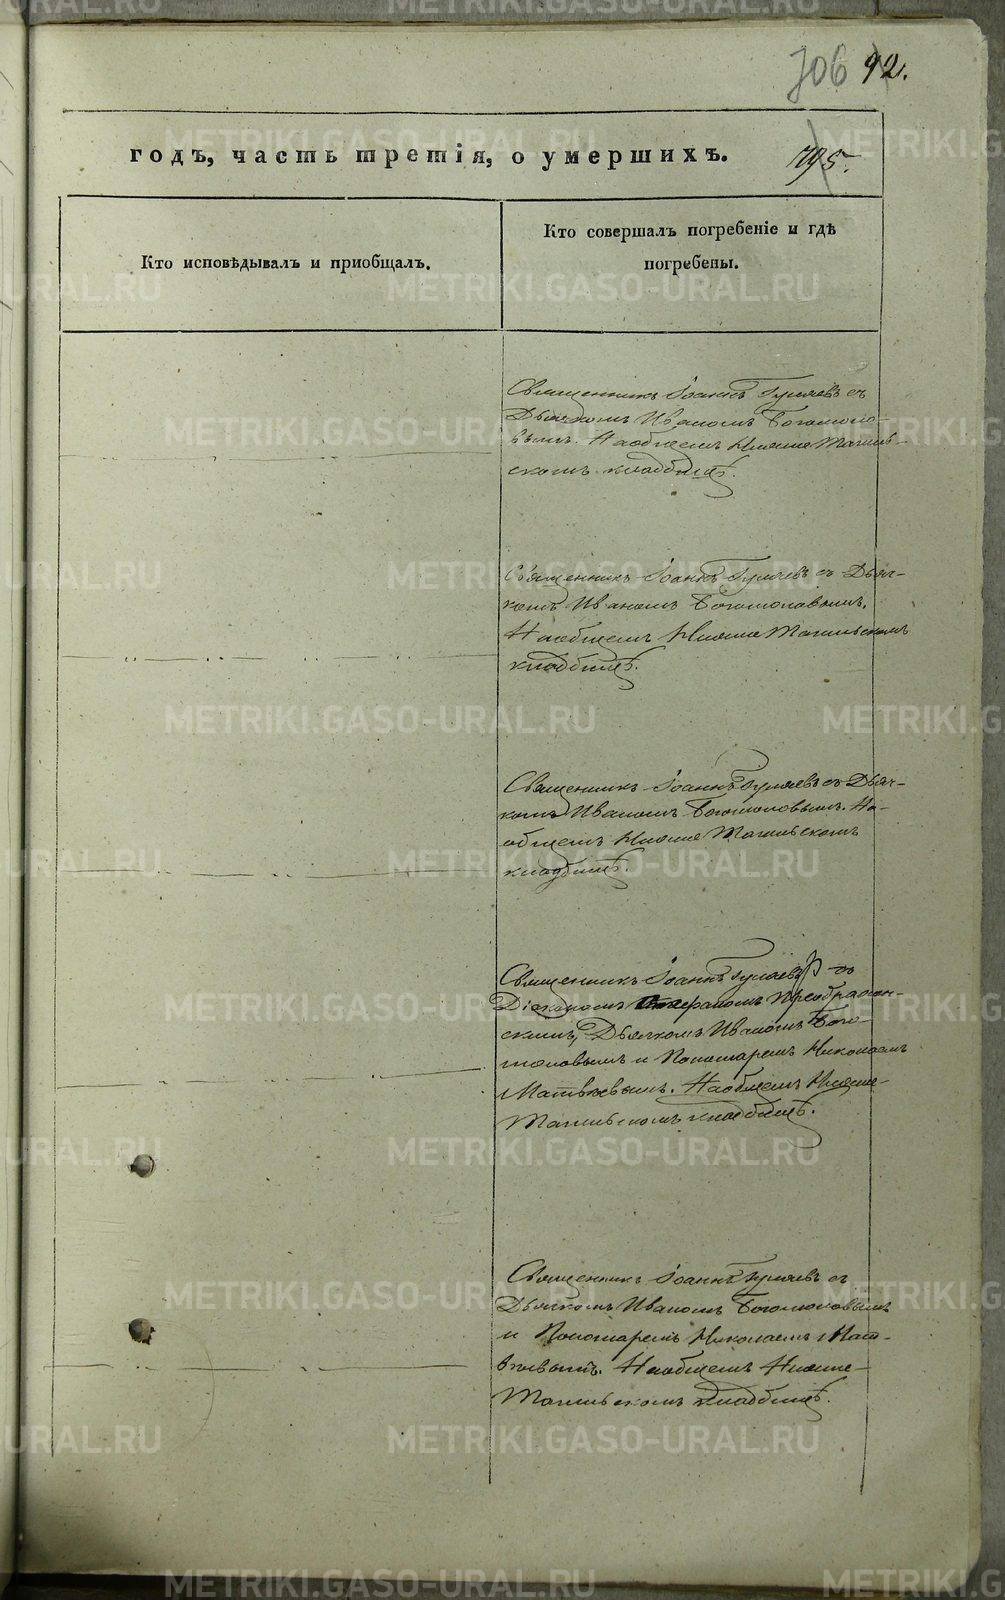 706 92.
годъ, часть третія, о умершихъ. 795.
Кто исповѣдывалъ и пріобщалъ.
Кто совершалъ погребеніе и гдѣ
погребены.
Священникъ Іоаннъ Гуляевъ съ
Дьячкомъ Иваномъ Богомоло-
вымъ. На общемъ Нижне Тагиль-
скомъ кладбищѣ.
Священникъ Іоаннъ Гуляевъ съ Дьяч-
комъ Иваномъ Богомоловымъ.
На общемъ Нижне Тагильскомъ
кладбищѣ.
Священникъ Іоаннъ Гуляевъ съ Дьяч-
комъ Иваномъ Богомоловымъ. На
общемъ Нижне Тагильскомъ
кладбищѣ.
Священникъ Іоаннъ Гуляевъ съ
Діакономъ Преображен-
скимъ, Дьячкомъ Иваномъ Бого-
моловымъ и Пономаремъ Николаемъ
Матвѣевымъ. На общемъ Нижне-
Тагильскомъ кладбищѣ.
Священникъ Іоаннъ Гуляевъ съ
Дьячкомъ Иваномъ Богомоловымъ
и Пономаремъ Николаемъ Мат-
вѣевымъ. На общемъ Нижне-
Тагильскомъ кладбищѣ.
METRIKI.GASO-URAL.RU